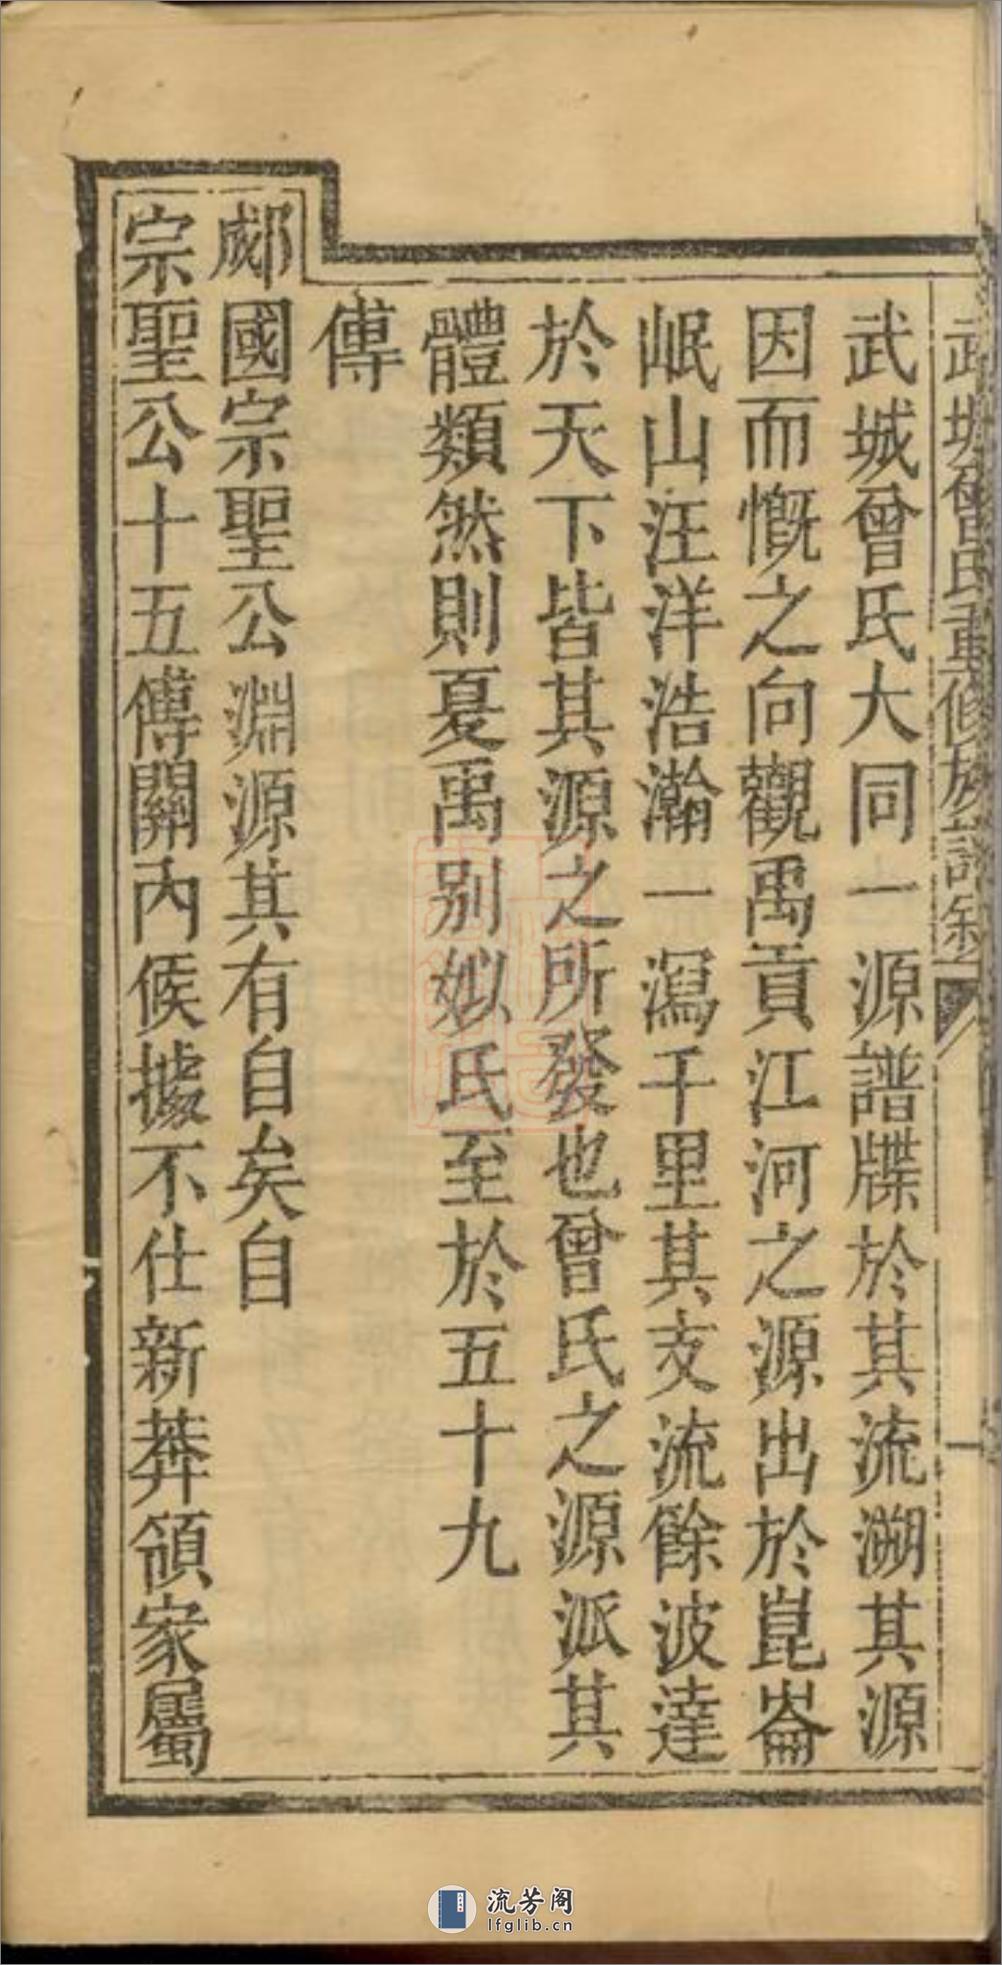 武城曾氏重修族譜叙 一
武城曾氏大同一源譜牒於其流溯其源
因而慨之向觀禹貢江河之源出於崑崙
岷山汪洋浩瀚一瀉千里其支流餘波達
於天下皆其源之所發也曾氏之源派其
體類然則夏禹别姒氏至於五十九
傳
郕國宗聖公淵源其有自矣自
宗聖公十五傳關內侯據不仕新莽領家屬
流芳阁
lfglib.cn